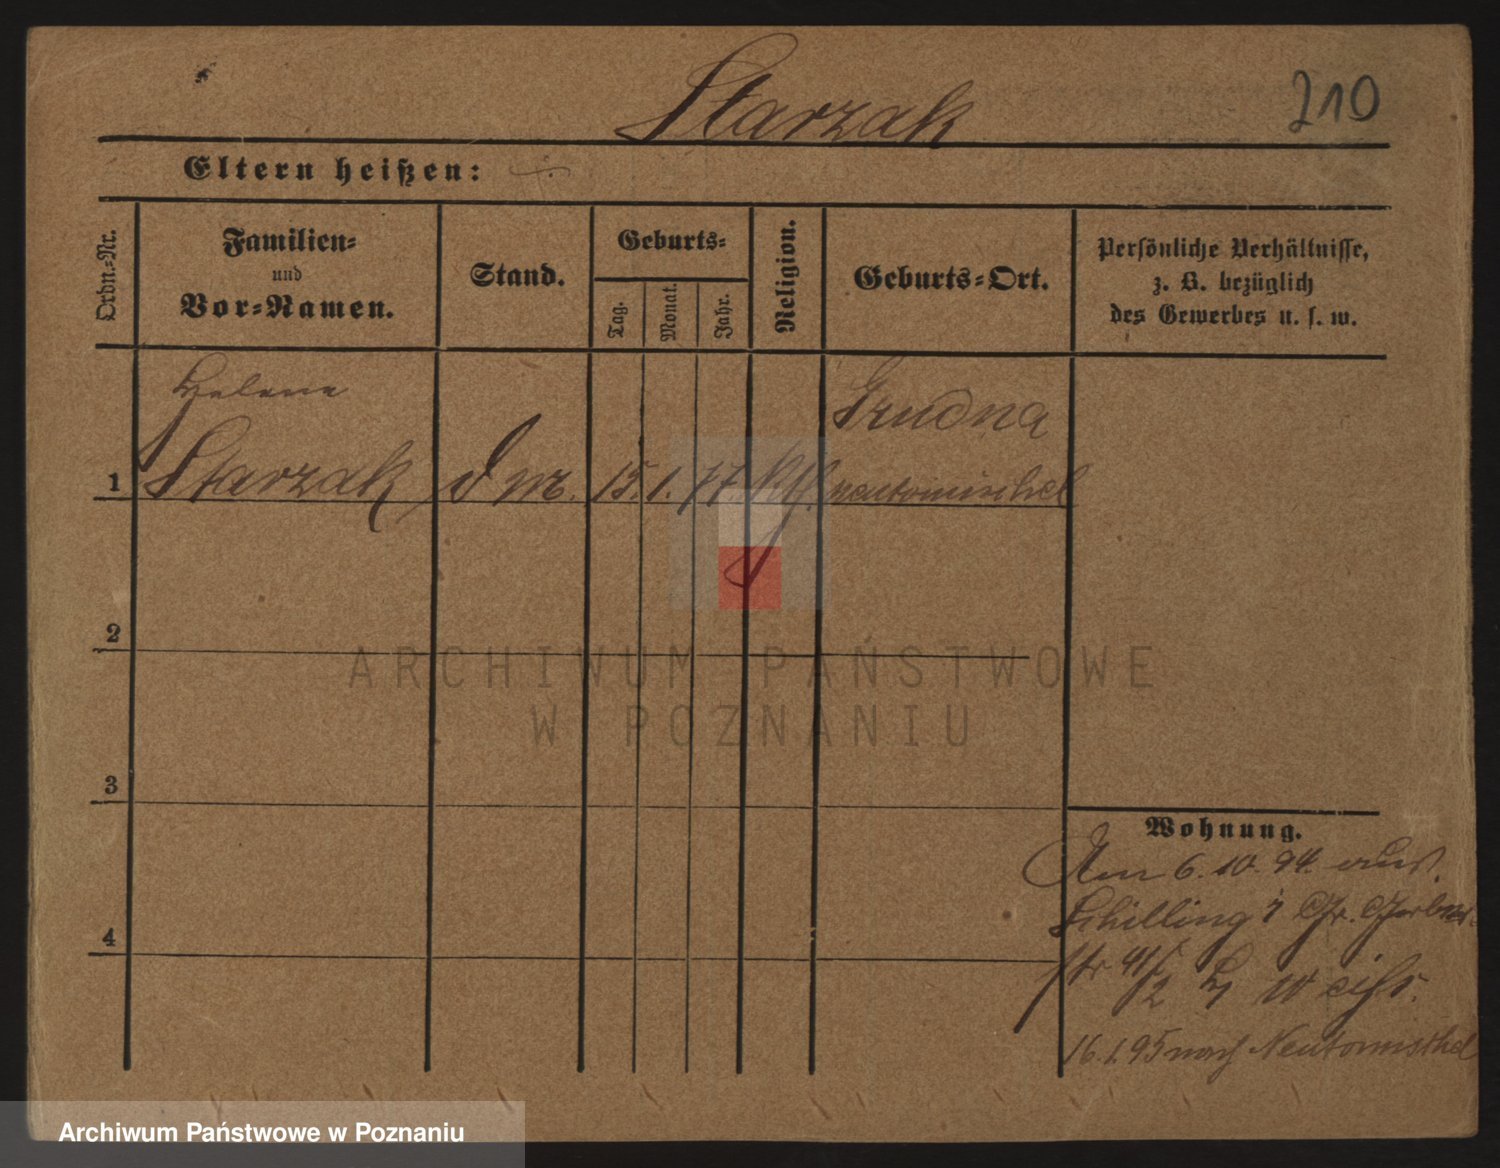 Starzak
210
Eltern heißen:
Ordn.-Nr.
Familien-
und
Vor-Namen.
Stand.
Geburts-
Tag.
Monat.
Jahr.
Religion.
Geburts-Ort.
Persönliche Verhältnisse,
z. B. bezüglich
des Gewerbes u. s. w.
Helene
Grudna
1 Starzak 15. 1. 77 kth. neutomischel
2
ARCHIWUM PAŃSTWOWE
W POZNANIU
3
Wohnung.
Am 6.10.94. aus
Schilling Gr. Gerber
4
str 41/2
16.1.95 nach Neutomischel
Archiwum Państwowe w Poznaniu